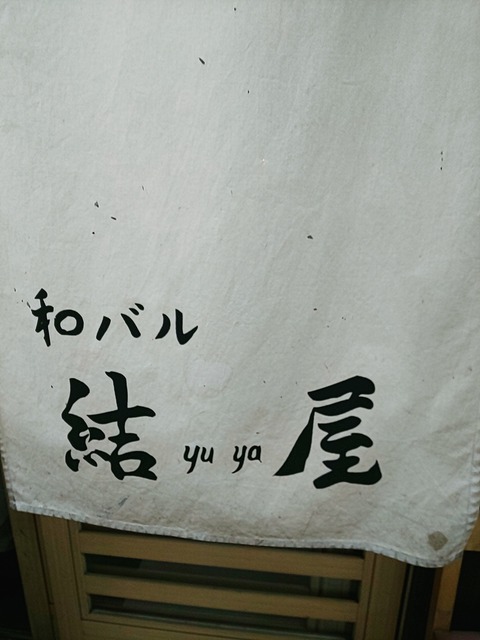 和バル
結 yu ya 屋